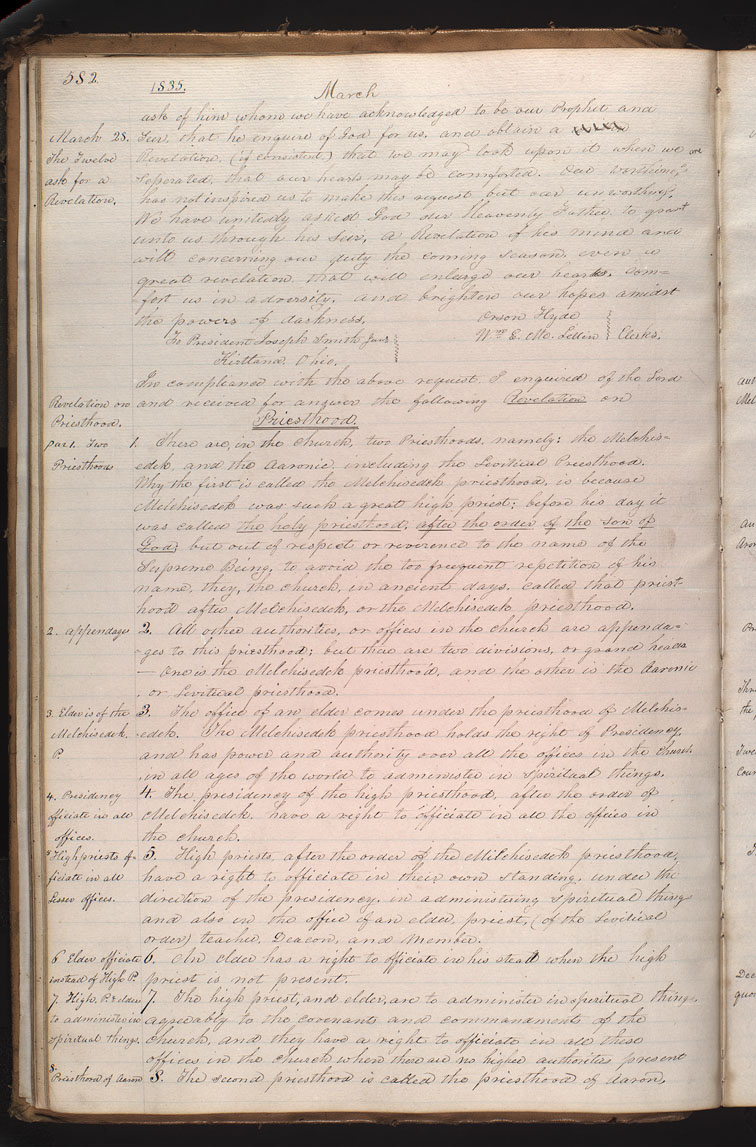 582
1835.
March
ask of him whom we have acknowledged to be our Prophet and
March 28. Seer, that he enquire of God for us, and obtain a
The Twelve Revelation, (if consistent) that we may look upon it when we are
ask for a seperated, that our hearts may be comforted. Our worthiness
Revelation. has not inspired us to make this request but our unworthiness.
We have unitedly asked God our Heavenly Father to grant
unto us through his Seer, a Revelation of his mind and
will concerning our duty the coming season, even a
great revelation that will enlarge our hearts, com-
fort us in adversity, and brighten our hopes amidst
the powers of darkness.
Orson Hyde
To President Joseph Smith Junr
Wm E. Mc. Lellin } Clerks.
Kirtland, Ohio.
In compliance with the above request I enquired of the Lord
Revelation on and received for answer the following Revelation on
Priesthood. Priesthood.
par 1. Two 1. There are, in the church, two Priesthoods, namely: the Melchis-
Priesthoods edek, and the Aaronic, including the Levitical Priesthood.
Why the first is called the Melchisedek priesthood, is because
Melchisedek was such a great high priest: before his day it
was called the holy priesthood, after the order of the Son of
God; but out of respect or reverence to the name of the
Supreme Being, to avoid the too frequent repetition of his
name, they, the church, in ancient days, called that priest-
hood after Melchisedek, or the Melchisedek priesthood.
2. appendages 2. All other authorities, or offices in the church are appenda-
-ges to this priesthood; but there are two divisions, or grand heads
— One is the Melchisedek priesthood, and the other is the Aaronic
or Levitical priesthood.
3. Elder is of the 3. The office of an elder comes under the priesthood of Melchis-
Melchisedek. -edek. The Melchisedek priesthood holds the right of Presidency,
P. and has power and authority over all the offices in the church
in all ages of the world to administer in spiritual things.
4. Presidency 4. The presidency of the high priesthood, after the order of
officiate in all Melchisedek, have a right to officiate in all the offices in
offices. the church.
5 High priests of- 5. High priests, after the order of the Melchisedek priesthood,
ficiate in all have a right to officiate in their own standing, under the
lesser offices. direction of the presidency, in administering spiritual things
and also in the office of an elder, priest, (of the Levitical
order) teacher, Deacon, and member.
6 Elder officiate 6. An elder has a right to officiate in his stead when the high
instead of High P. priest is not present.
7. High P. & elder 7. The high priest, and elder, are to administer in spiritual things
to administer in agreeably to the covenants and commandments of the
spiritual things. church, and they have a right to officiate in all these
offices in the church when there are no higher authorities present
8.
Priesthood of Aaron 8. The second priesthood is called the priesthood of Aaron,